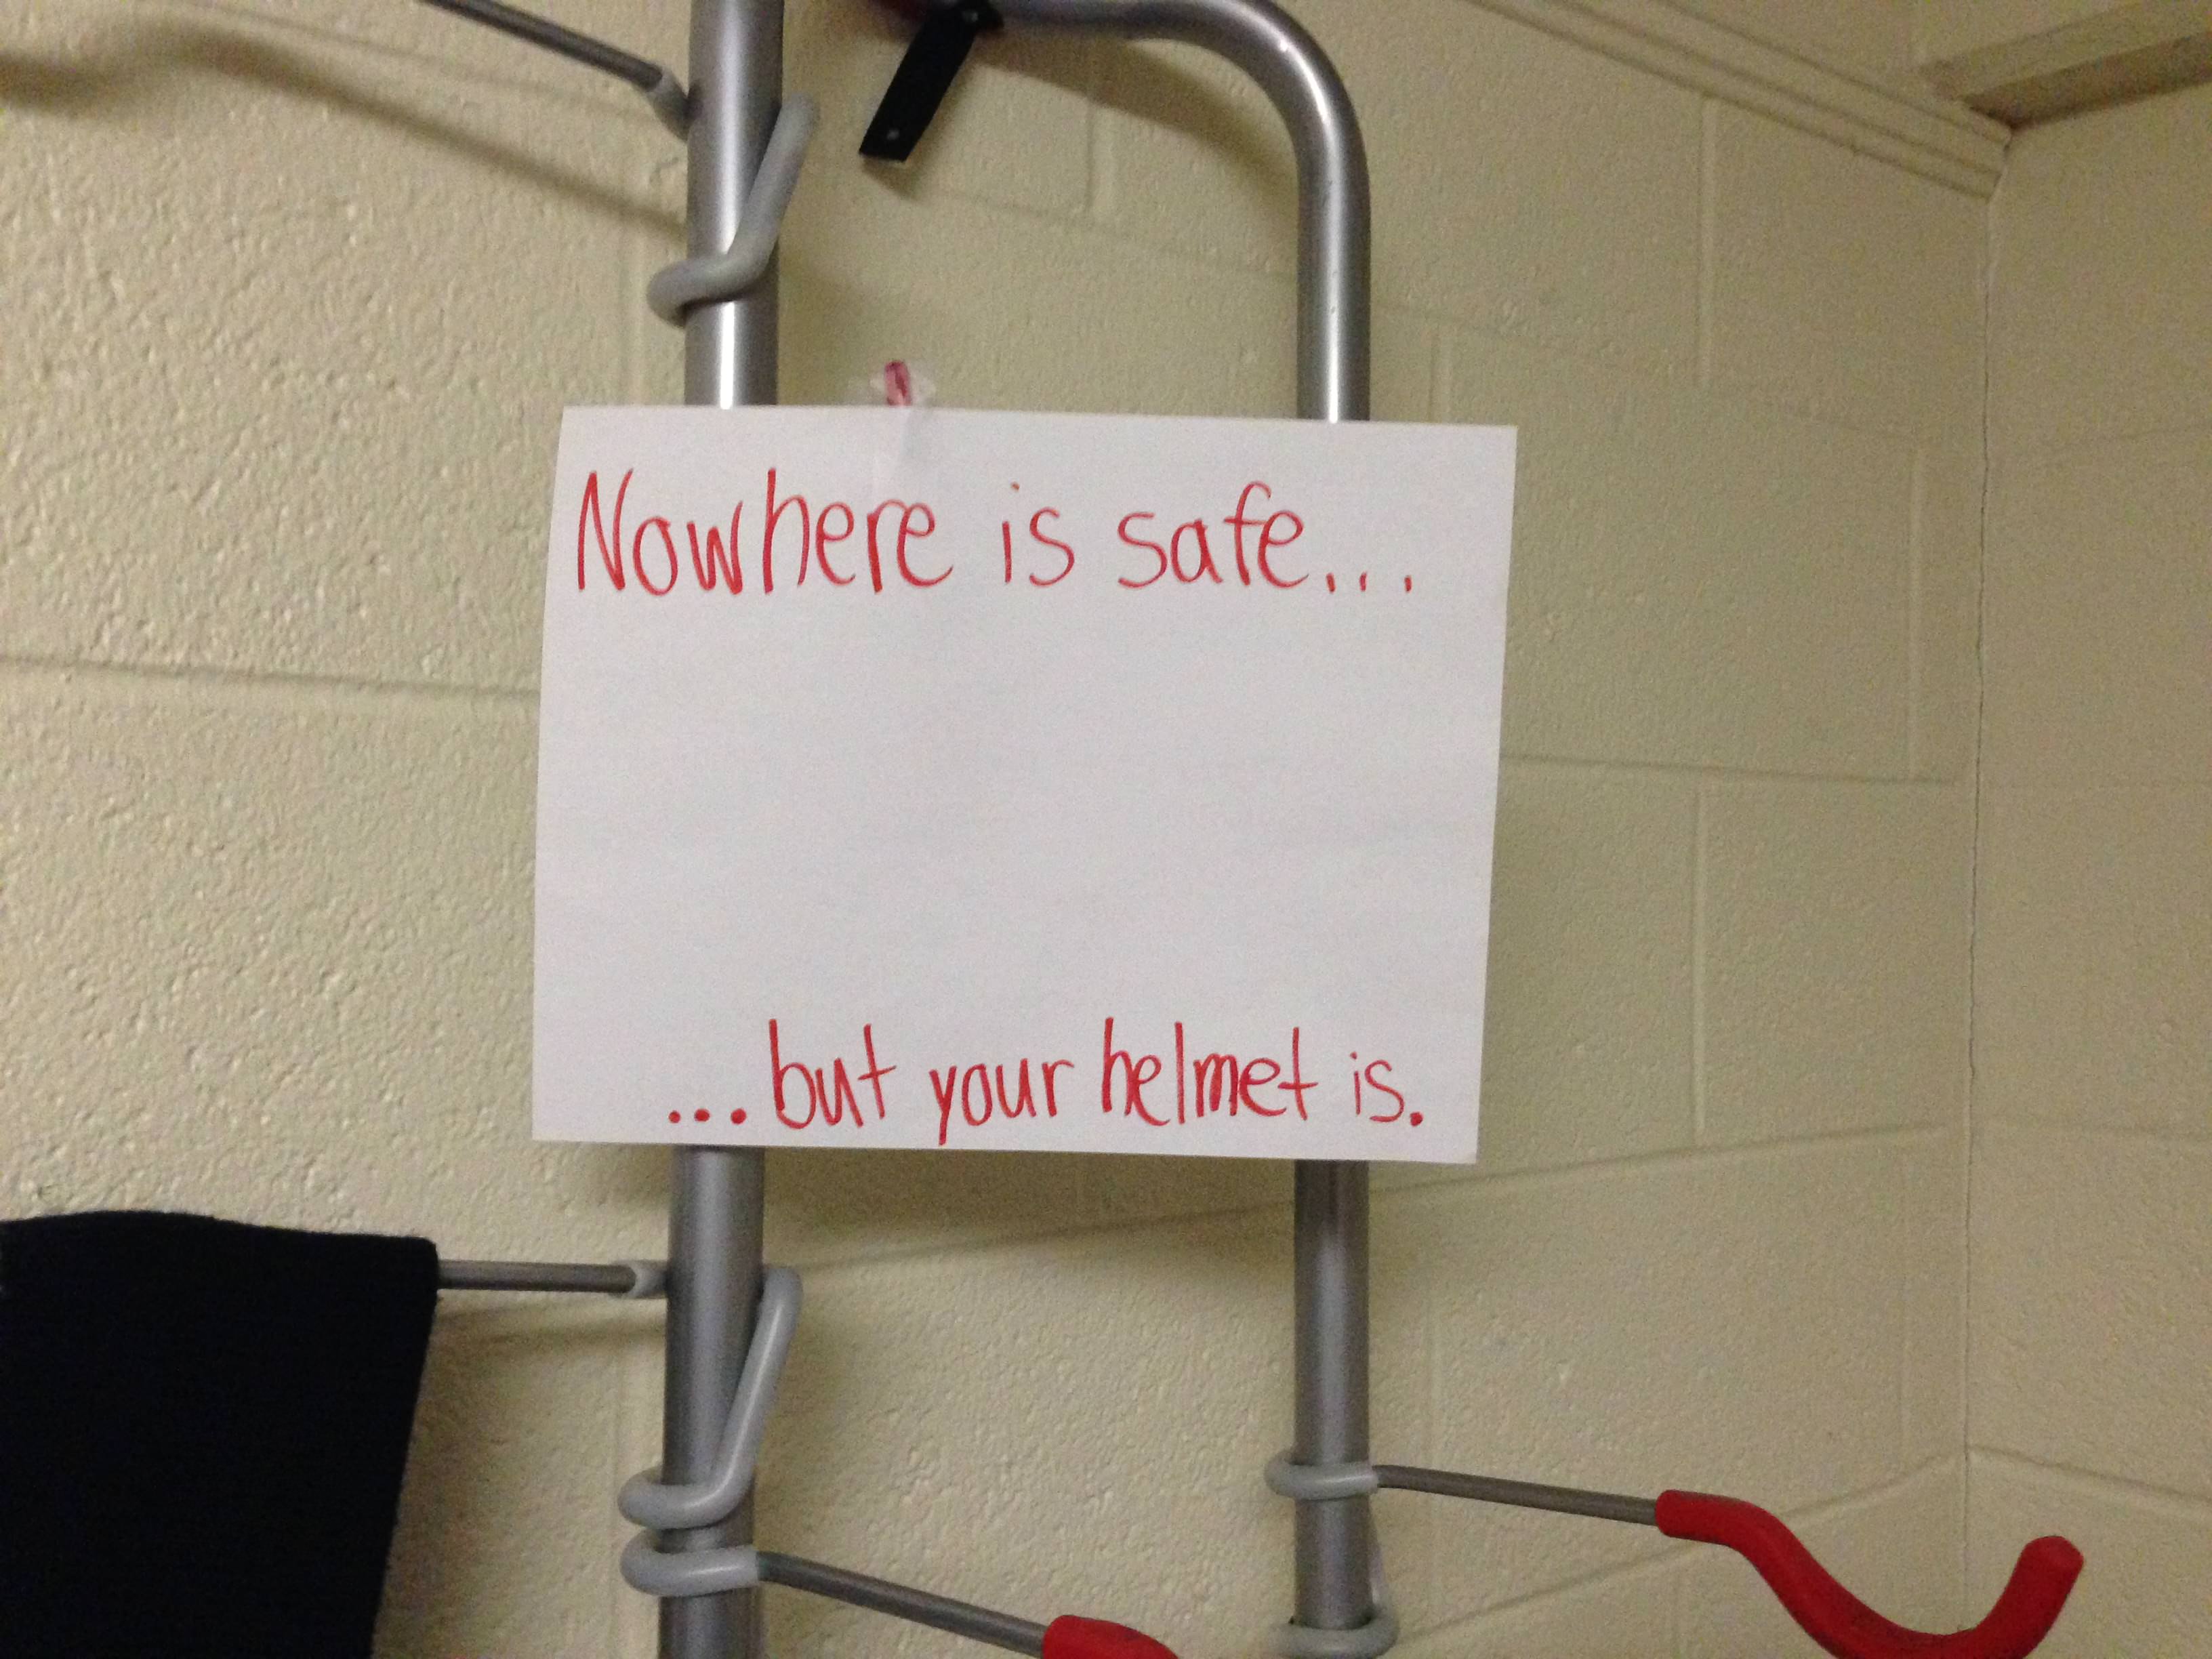 Nowhere is safe...
...but your helmet is.